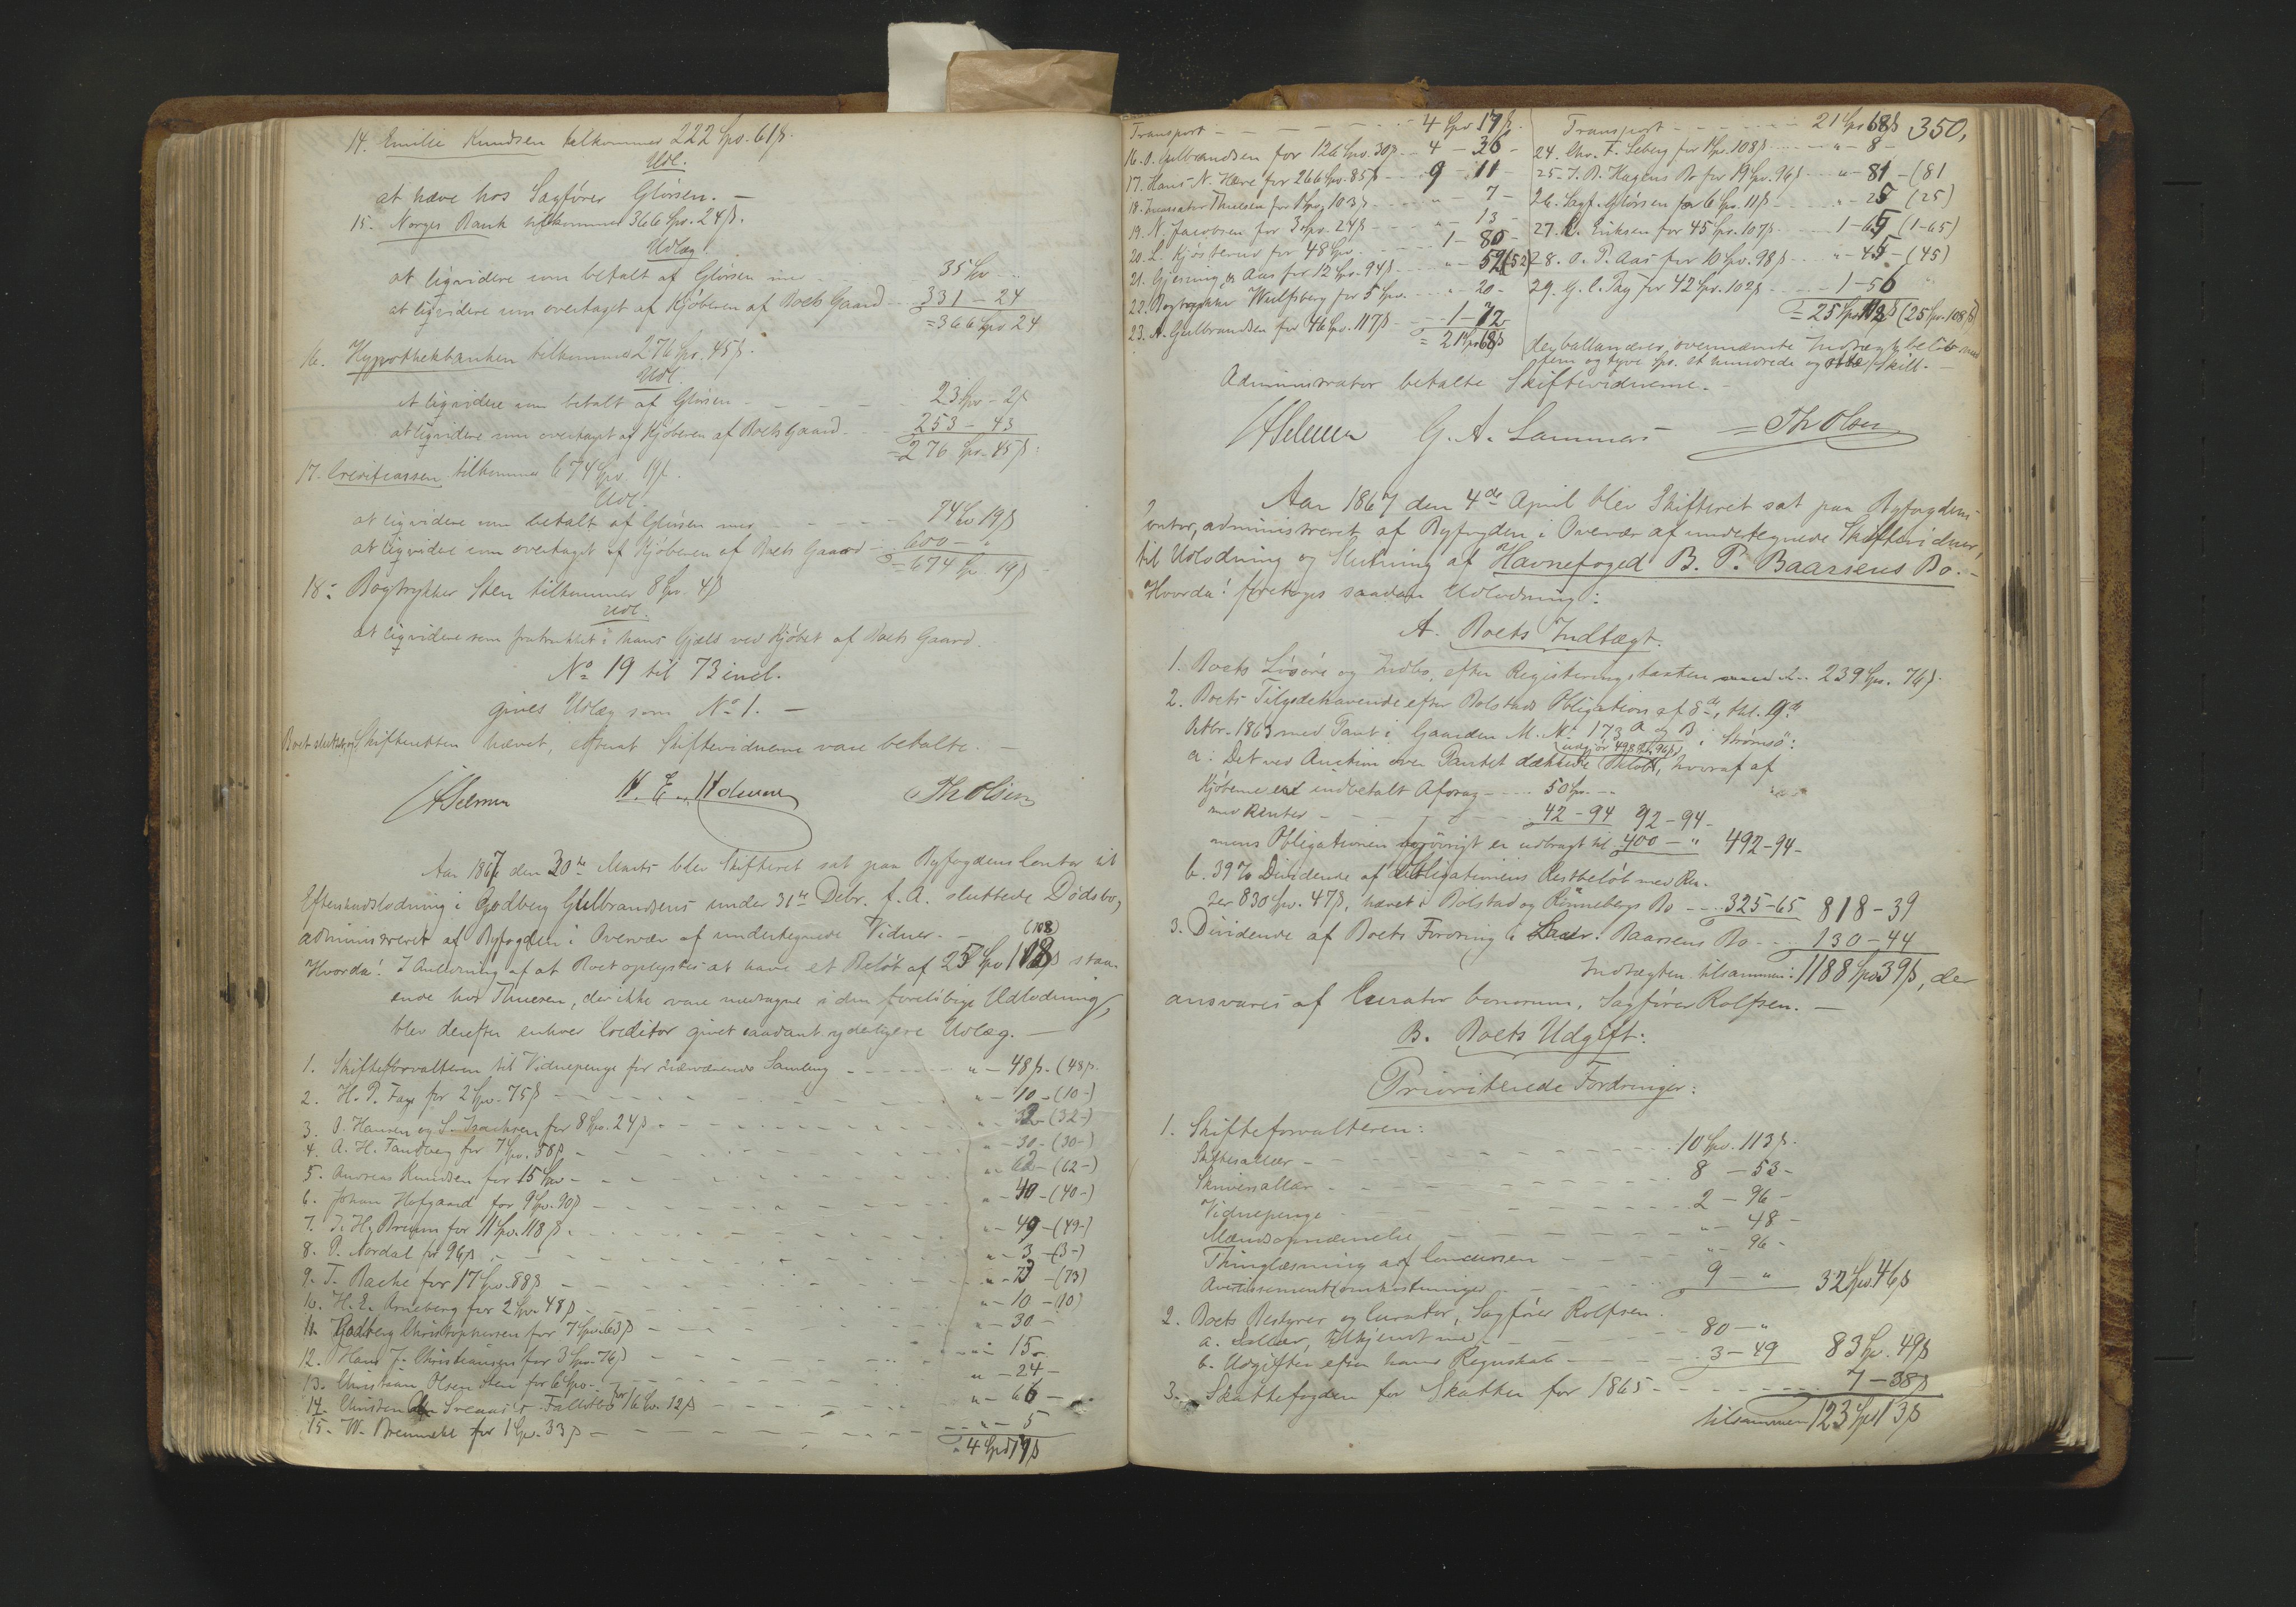 14. Emilie Knudsen tilkommer 222 Spd. 61ß.
Udl.
at hæve hos Sagfører Glørsen. —
15. Norges Bank tilkommer 366 Spd. 24ß.
Udlæg.
at liqvidere som betalt af Glørsen med 35 Spd —
at liqvidere som overtaget af Kjøberen af Boets Gaard 331 — 24
= 366 Spd 24
16. Hypothekbanken tilkommer 276 Spd. 45ß.
Udl.
at liqvidere som betalt af Glørsen — 23 Spd — 2ß
at liqvidere som overtaget af Kjøberen af Boets Gaard 253 — 43
= 276 Spd. 45ß:
17. Creditcassen tilkommer 674 Spd 19ß.
Udl.
at liqvidere som betalt af Glørsen med 74 Spd 19ß
at liqvidere som overtaget af Kjøberen af Boets Gaard — 600 — "
= 674 Sp. 19ß
18. Bogtrykker Steen tilkommer 8 Spd. 4ß
Udl.
at liqvidere som fratrukket i hans Gjæld ved Kjøbet af Boets Gaard.
No 19 til 73 incl.
gives Udlæg som No 1. —
Boet sluttet og Skifteretten hævet, efterat Skiftevidnerne vare betalte. —
Selmer Th Olsen
Aar 1867 den 30te Marts blev Skifteret sat paa Byfogdens Contor til
Efterudlodning i Godberg Gulbrandsens under 31te Decbr. f. A. sluttede Dødsbo,
administreret af Byfogden i Overvær af undertegnede Vidner. —
(108)
Hvorda! I Anledning af at Boet oplystes at have et Beløb af 25 Spd 108ß staa-
ende hos Thuesen, der ikke vare medtagne i den foreløbige Udlodning,
blev derefter enhver Creditor givet saadant yderligere Udlæg. —
1. Skifteforvalteren til Vidnepenge for nærværende Samling — " — 48ß. (48ß.
2. H. P. Faye for 2 Spd. 75ß — " — 10 — (10 —)
3. P. Hansen og S. Isachsen for 8 Spd. 24ß — " — 32 — (32 —)
4. A. H. Tandberg for 7 Spd. 58ß — " — 30 — (30 —)
5. Andreas Knudsen for 15 Spd — " — 62 — (62 —)
6. Johan Hofgaard for 9 Spd. 90ß — " — 40 — (40 —)
7. J. H. Bruun for 11 Spd. 118ß — " — 49 — (49 —)
8. P. Nordal for 96ß — " — 3 — (3 —)
9. T. Bache for 17 Spd. 88ß — " — 73 — (73)
10. H. E. Arneberg for 2 Spd. 48ß — " — 10 — (10)
11. Godberg Christophersen for 7 Spd. 63ß — " — 30 —
12. Hans J. Christiansen for 3 Spd. 76ß — " — 15 —
13. Christian Olsen Steen for 6 Spd. — " — 24 —
14. Christen Svenaas's Fallitbo for 16 Spd. 12ß — " — 66 —
15. W. Bremwehl for 1 Spd. 33ß — " — 5
= 4 Spd 17ß
350.
Transport — 4 Spd 17ß.
16. O. Gulbrandsen for 126 Spd. 30ß — 4 — 36 —
17. Hans N. Hære for 266 Spd. 85ß — 9 — 11 —
18. Thuesen for 1 Spd 103ß — " — 7 —
19. N. Jacobsen for 3 Spd. 24ß — " — 13 —
20. L. Kjøsterud for 48 Spd. — 1 — 80 —
21. Gjesning & Aas for 12 Spd. 94ß — " — 52 (52)
22. Bogtrykker Wulfsberg for 5 Spd. — " — 20 —
23. A. Gulbrandsen for 46 Spd. 117ß — 1 — 72
= 21 Spd 68ß
Transport — 21 Spd 68ß
24. Chr. F. Seberg for 1 Spd. 108ß — " — 8 —
25. J. B. Hagens Bo for 19 Spd. 96ß — " — 81 — (81
26. Sagf. Glørsen for 6 Spd. 11ß — " — 25 (25)
27. R. Eriksen for 45 Spd. 107ß — 1 — 65 (1 — 65)
28. O. P. Aas for 10 Spd. 98ß — " — 45 — (45)
29. G. C. Fay for 42 Spd. 102ß — 1 — 56
= 25 Spd 108ß (25 Spd. 108ß)
der ballancerer ovennævnte Indtægtsbeløb med
fem og tyve Spd. et hundrede og otte Skill. —
Administrator betalte Skiftevidnerne. —
Selmer G. A. Lammers Th Olsen
Aar 1867 den 4de April blev Skifteret sat paa Byfogdens
Contor, administreret af Byfogden i Overvær af undertegnede Skiftevidner,
til Udlodning og Slutning af Havnefoged B. P. Baarsens Bo. —
Hvorda! foretoges saadan Udlodning:
A. Boets Indtægt.
1. Boets Løsøre og Indbo, efter Registeringstaxten med 239 Spd. 76ß.
2. Boets Tilgodehavende efter Bolstads Obligation af 8de, thl. 9de
Octbr. 1863 med Pant i Gaarden M. No 173 A og B i Strømsø:
(udgjør 498 Spd. 96ß)
a: Det ved Auction over Pantet dækkede Beløb, hvoraf af
Kjøberne er indbetalt Afdrag — 50 Spd. —
med Renter — 42 — 94 92 — 94 —
mens Obligationen forøvrigt er udbragt til 400 — " 492 — 94 —
b. 39% Dividende af Obligationens Restbeløb med Ren-
ter 830 Spd. 47ß, hævet i Bolstad og Rønnebergs Bo — 325 — 65 818 — 39
3. Dividende af Boets Fordring i Laur. Baarsens Bo — 130 — 44
Indtægten tilsammen: 1188 Spd 39ß, der
ansvares af Curator bonorum, Sagfører Rolfsen. —
B. Boets Udgift:
Prioriterede Fordringer:
1. Skifteforvalteren:
Skiftesallær — 10 Spd. 113ß.
Skriversallær — 8 — 53 —
Vidnepenge — 2 — 96 —
Mændsopnævnelse — " — 48 —
Thinglæsning af Concursen — " — 96 —
Avertissementsomkostninger — 9 — " 32 Spd 46ß
2. Boets Bestyrer og Curator, Sagfører Rolfsen.
a. Sallær, tilkjendt med — 80 — "
b. Udgifter efter hans Regnskab — 3 — 49 83 Sp. 49ß
3. Skattefogden for Skatter for 1865 — 7 — 38ß
tilsammen 123 Spd 13ß